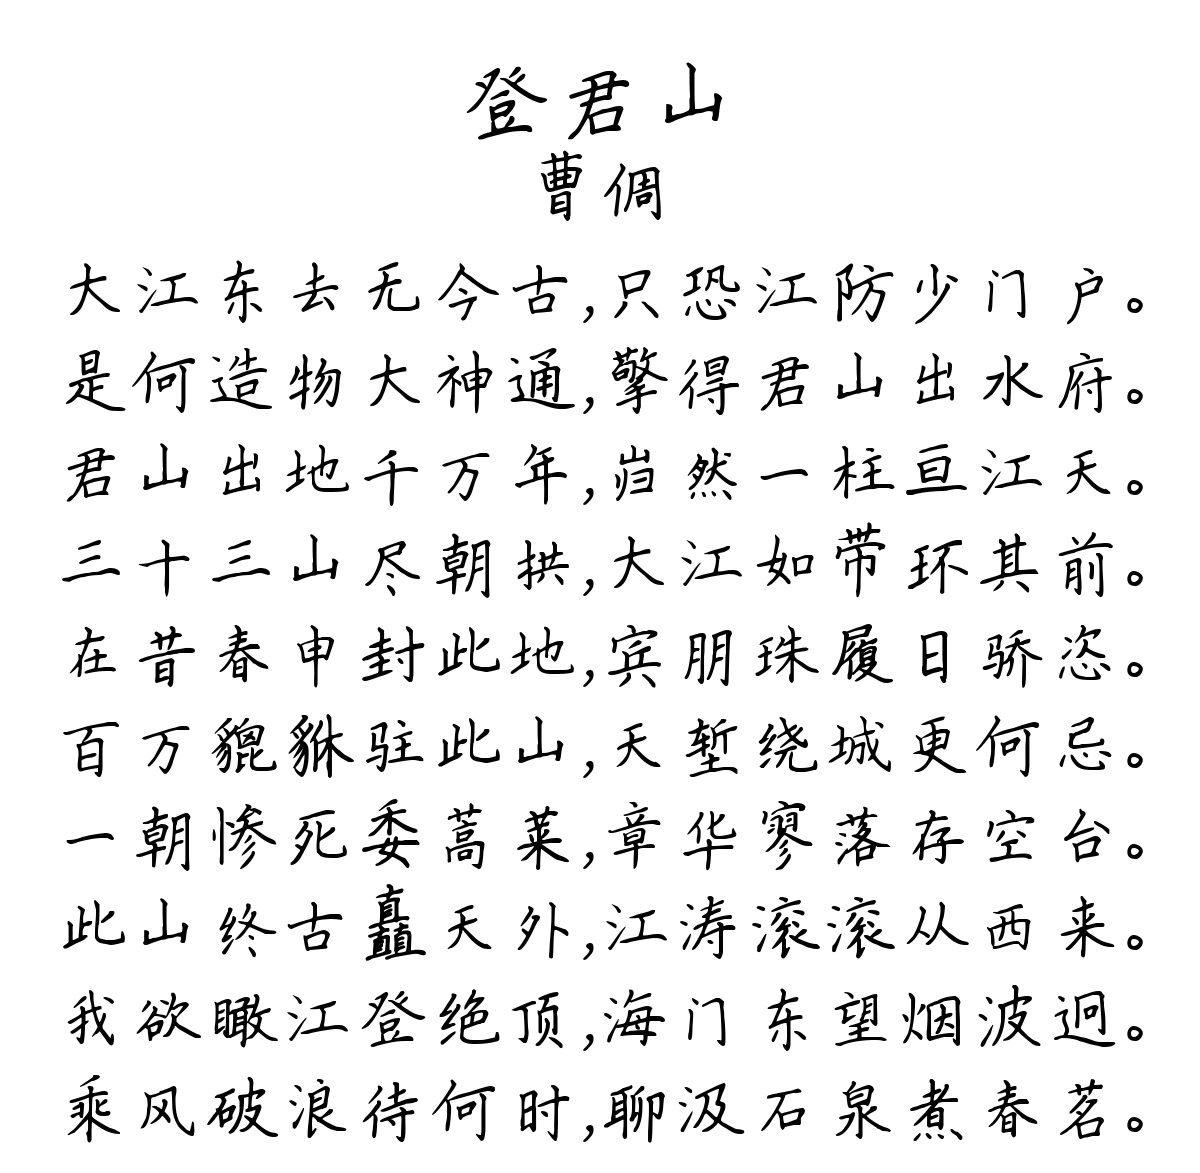 登君山
曹倜
大江东去无今古,只恐江防少门户。
是何造物大神通,擎得君山出水府。
君山出地千万年,岿然一柱亘江天。
三十三山尽朝拱,大江如带环其前。
在昔春申封此地,宾朋珠履日骄恣。
百万貔貅驻此山,天堑绕城更何忌。
一朝惨死委蒿莱,章华寥落存空台。
此山终古矗天外,江涛滚滚从西来。
我欲瞰江登绝顶,海门东望烟波迥。
乘风破浪待何时,聊汲石泉煮春茗。